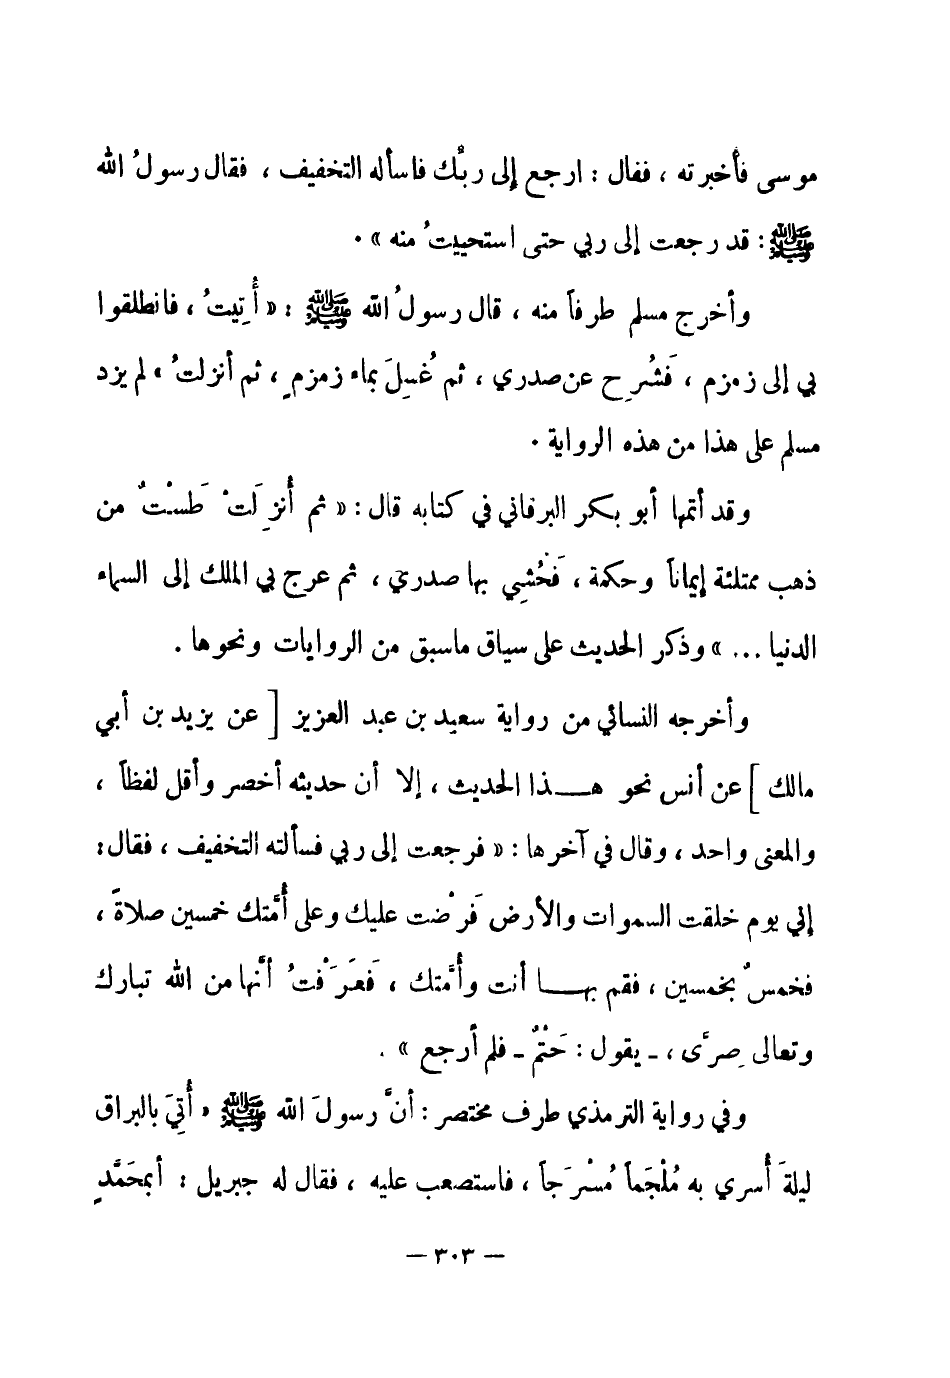 موسى فأخبرته ، فقال : ارجع إلى ربُّك فاسأله التخفيف ، فقال رسولُ الله
ﷺ : قد رجعت إلى ربي حتى استحييتُ منه » .
وأخرج مسلم طرفاً منه ، قال رسولُ الله ﷺ : « أُتِيتُ ، فانطلقوا
بي إلى زمزم ، فَشُرِح عن صدري ، ثم غُسِلَ بماء زمزمٍ ، ثم أنزلتُ » لم يزد
مسلم على هذا من هذه الرواية .
وقد أتمها أبو بكر البرقاني في كتابه قال : « ثم أُنزِلَتْ طَسْتٌ من
ذهب ممتلئة إيماناً وحكمة ، فَحُشِي بها صدري ، ثم عرج بي الملك إلى السماء
الدنيا ... » وذكر الحديث على سياق ماسبق من الروايات ونحوها .
وأخرجه النسائي من رواية سعيد بن عبد العزيز [ عن يزيد بن أبي
مالك ] عن أنس نحو هـــذا الحديث ، إلا أن حديثه أخصر وأقل لفظاً ،
والمعنى واحد ، وقال في آخرها : « فرجعت إلى ربي فسألته التخفيف ، فقال :
إني يوم خلقت السموات والأرض فَرْضت عليك وعلى أُمَّتك خمسين صلاةً ،
فخمسٌ بخمسين ، فقم بهـــا أنت وأُمَّتك ، فَعَرَفْتُ أنَّها من الله تبارك
وتعالى صِرَّى ، ـ يقول : حَتْمٌ ـ فلم أرجع » .
وفي رواية الترمذي طرف مختصر : أنَّ رسولَ الله ﷺ « أُتِيَ بالبراق
ليلةَ أُسري به مُلْجَماً مُسْرَجاً ، فاستصعب عليه ، فقال له جبريل : أبمحَمَّدٍ
— ٣٠٣ —